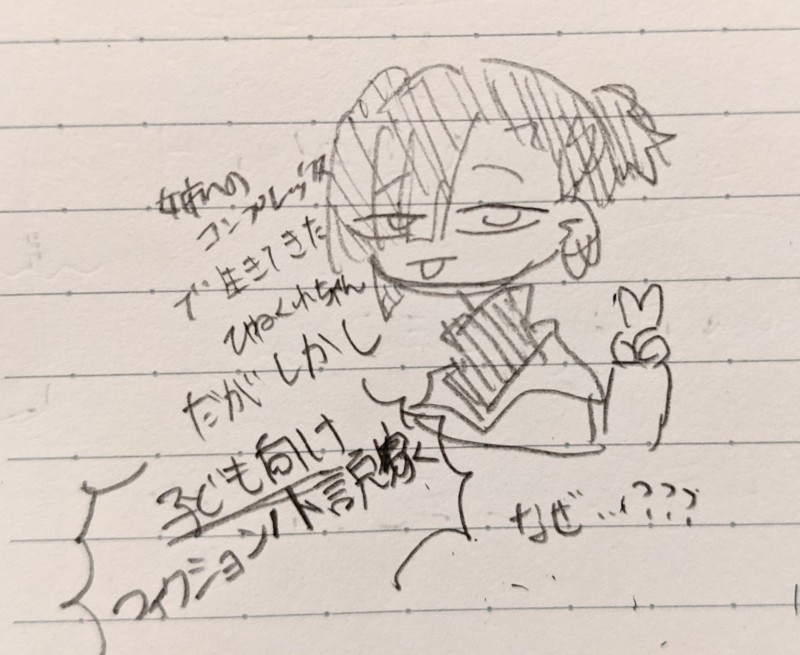 姉への
コンプレックス
で生きてきた
ひねくれちゃん
だがしかし
子ども向け
フィクション小説家く
なぜ…???